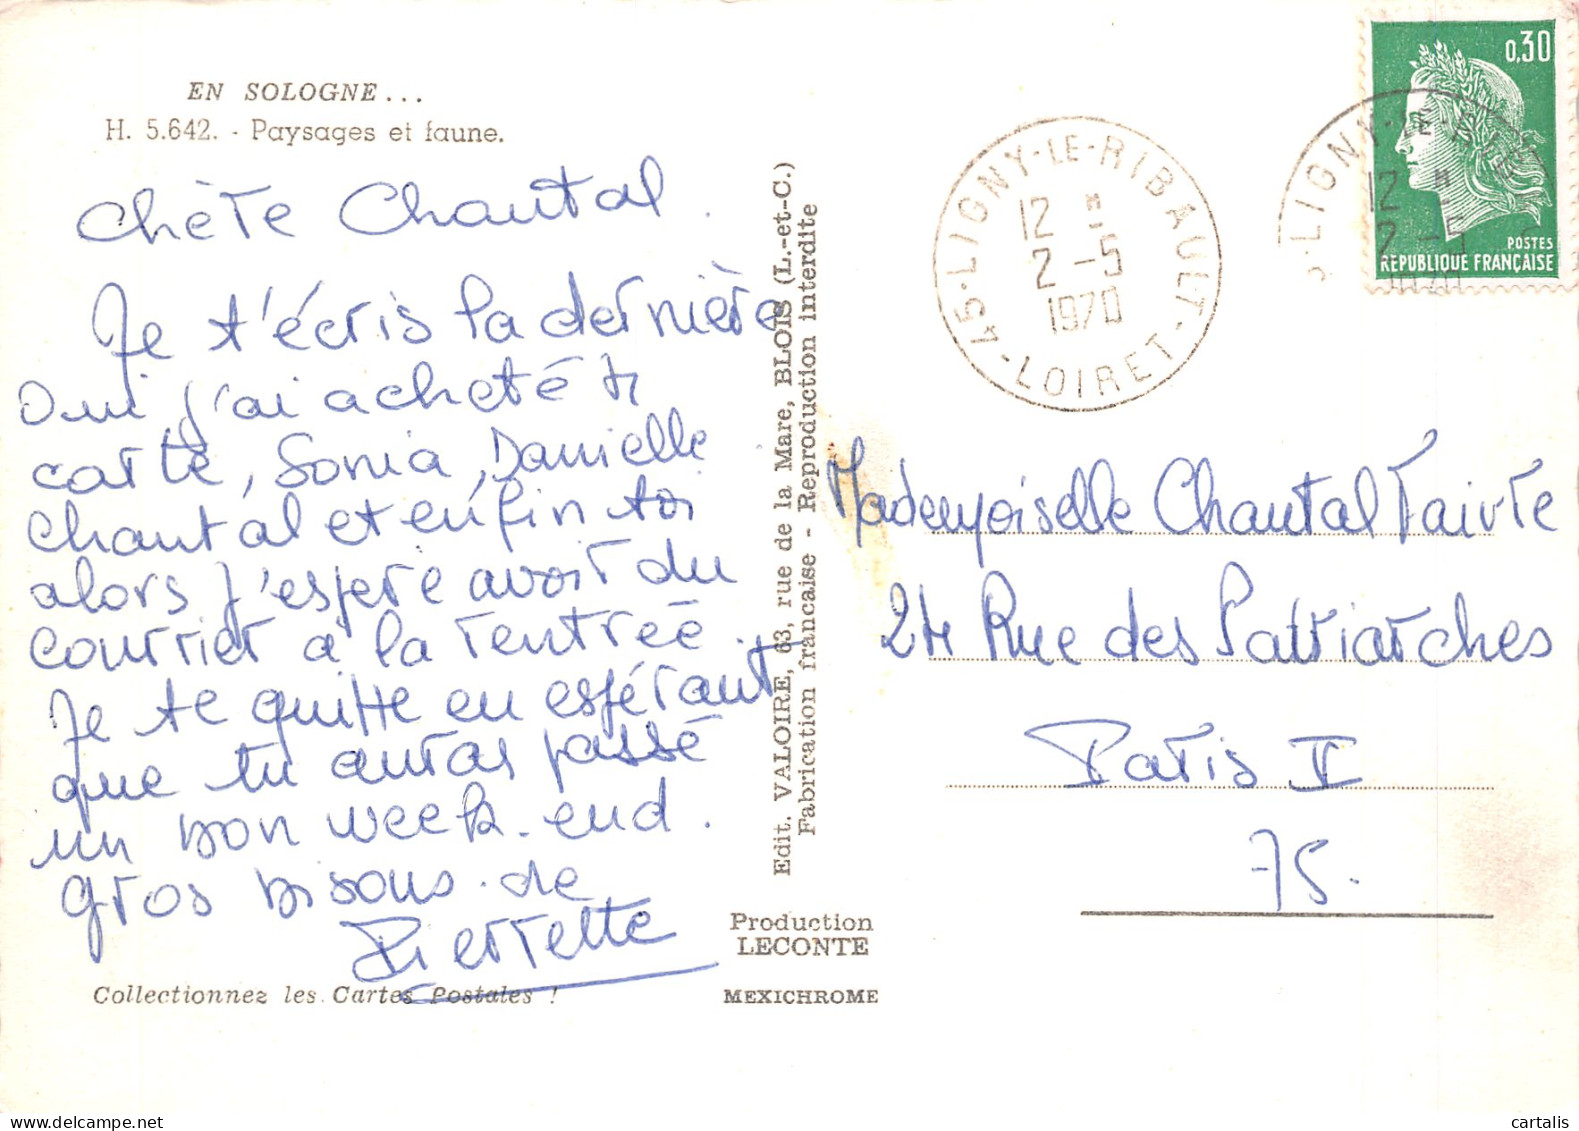 EN SOLOGNE...
H. 5.642. - Paysages et faune.
Chère Chantal.
Je t'écris la dernière
Oui j'ai acheté 4
carte, Sonia, Danielle
Chantal et enfin toi
alors j'espère avoir du
courrier à la rentrée
Je te quitte en espérant
que tu auras passé
un bon week-end.
gros bisous. de
Pierrette
Collectionnez les Cartes Postales !
Edit. VALOIRE, 63, rue de la Mare, BLOIS (L.-et-C.)
Fabrication francaise - Reproduction interdite
Production
LECONTE
MEXICHROME
45-LIGNY-LE-RIBAULT-LOIRET
12 H
2 -5
1970
0,30
POSTES
REPUBLIQUE FRANÇAISE
LIGNY-LE-
12 H
2 -5
1970
Mademoiselle Chantal Faivre
24 Rue des Patriarches
Paris V
75.
cartalis.com